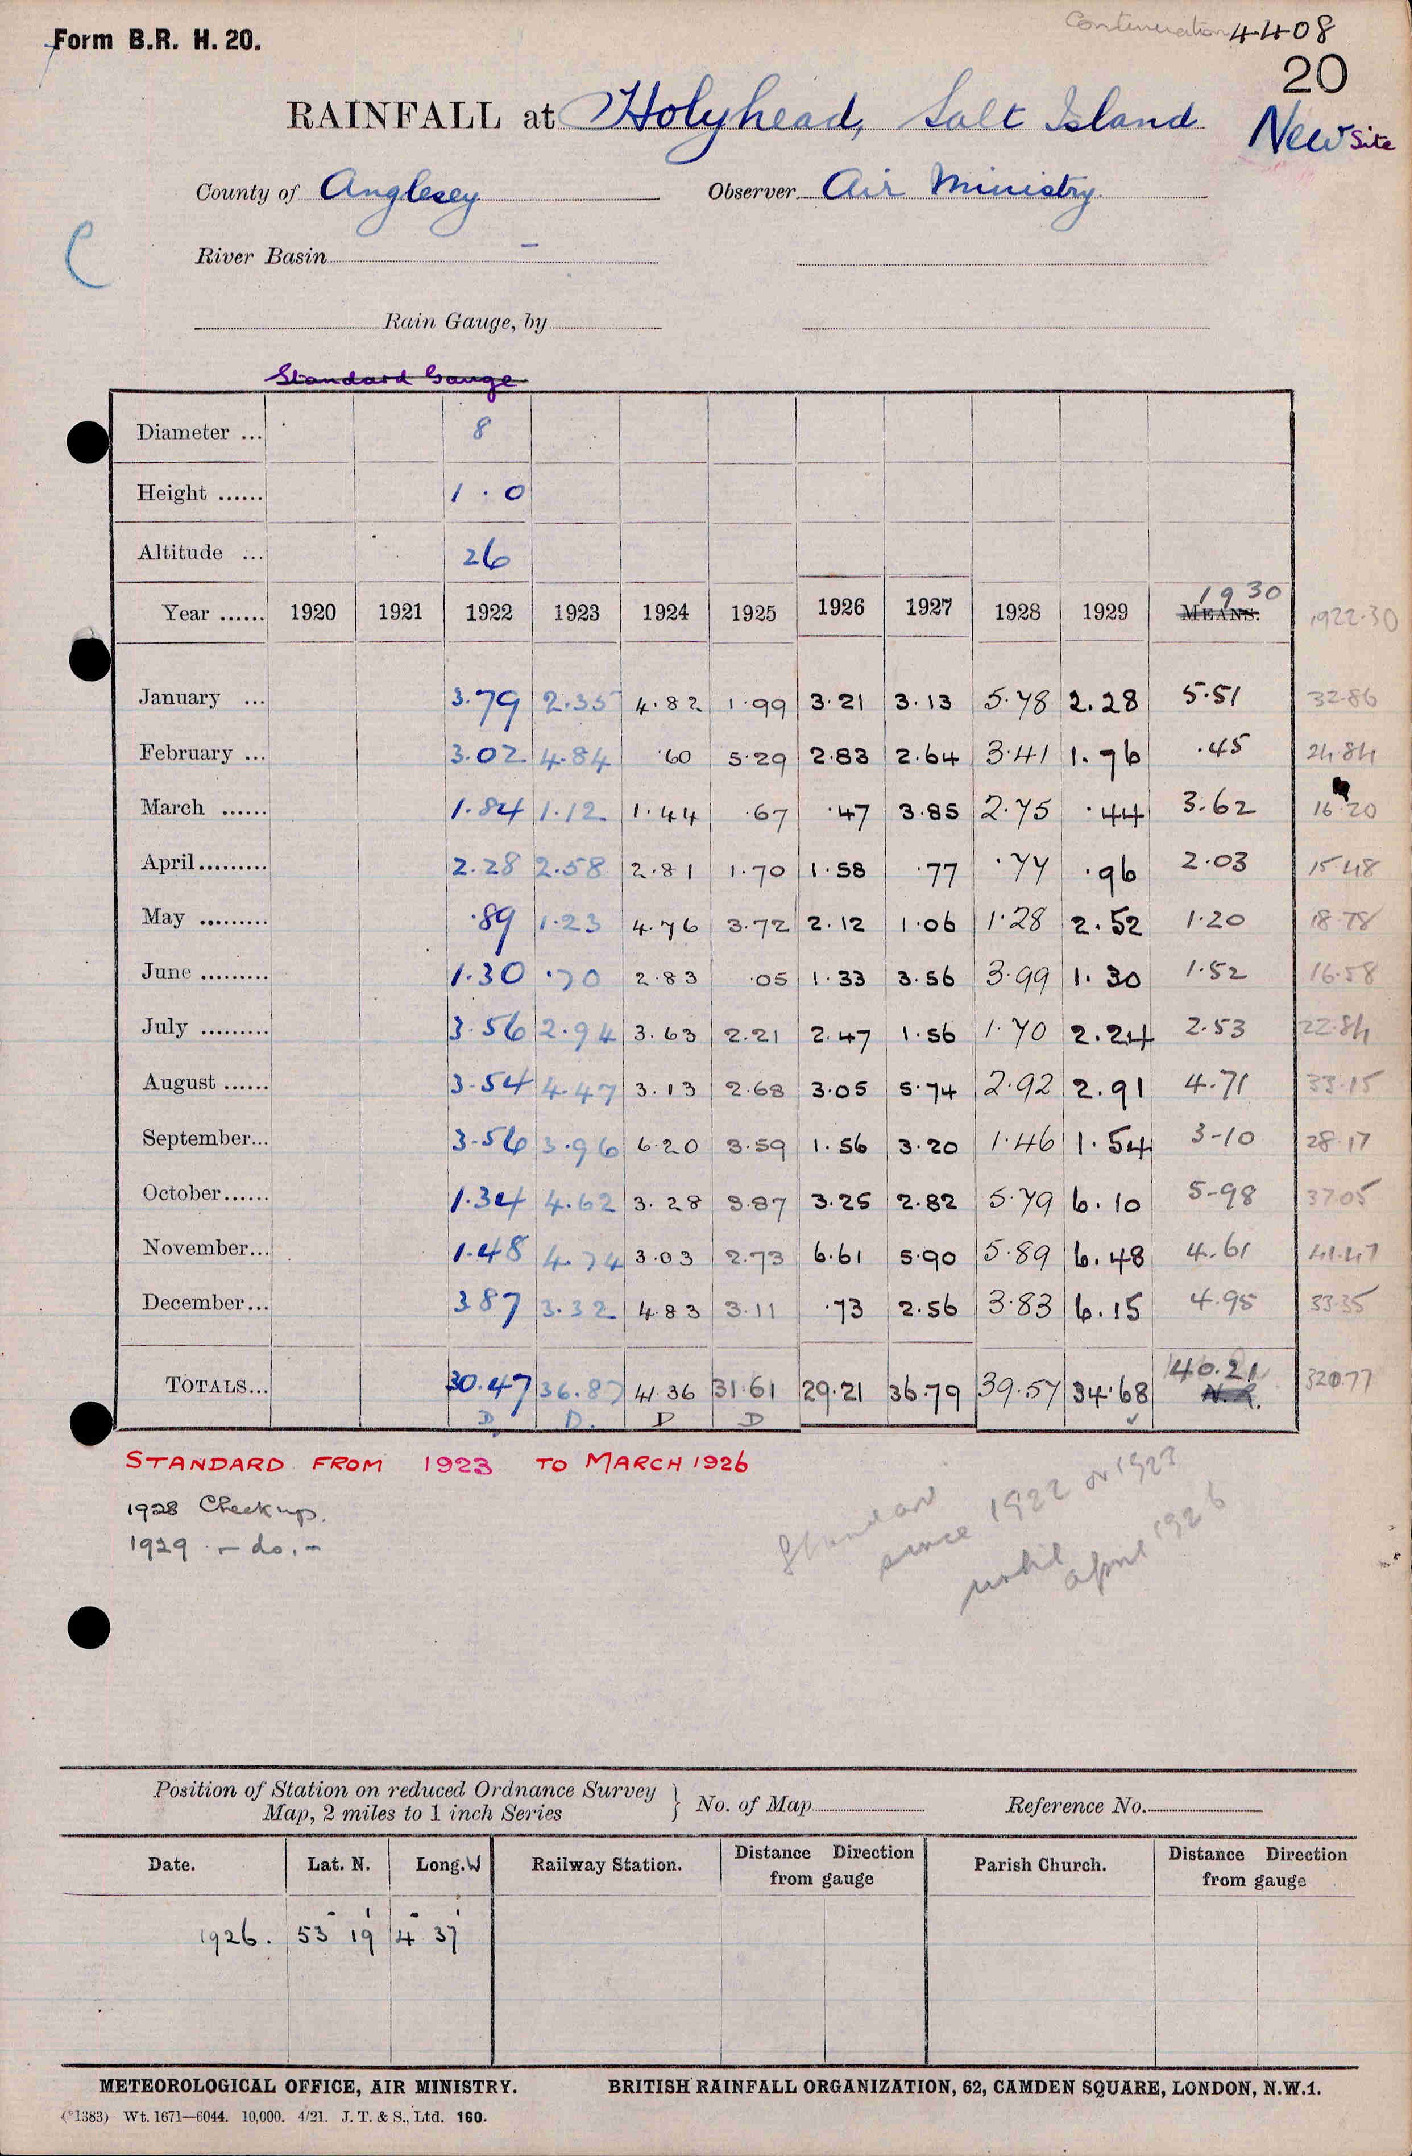 Form B.R. H. 20.
Continuation 4408
20
RAINFALL at Holyhead, Salt Island
New Site
County of Anglesey Observer Air Ministry
River Basin –
Rain Gauge, by
Standard Gauge
Diameter ... 8
Height ...... 1.0
Altitude ... 26
Year ...... 1920 1921 1922 1923 1924 1925 1926 1927 1928 1929 MEANS. 1930 1922-30
January ... 3.79 2.35 4.82 1.99 3.21 3.13 5.78 2.28 5.51 32.86
February ... 3.02 4.84 .60 5.29 2.83 2.64 3.41 1.76 .45 24.84
March ...... 1.84 1.12 1.44 .67 .47 3.85 2.75 .44 3.62 16.20
April ......... 2.28 2.58 2.81 1.70 1.58 .77 .77 .96 2.03 15.48
May ......... .89 1.23 4.76 3.72 2.12 1.06 1.28 2.52 1.20 18.78
June ......... 1.30 .70 2.83 .05 1.33 3.56 3.99 1.30 1.52 16.58
July ......... 3.56 2.94 3.63 2.21 2.47 1.56 1.70 2.24 2.53 22.84
August ...... 3.54 4.47 3.13 2.68 3.05 5.74 2.92 2.91 4.71 33.15
September... 3.56 3.96 6.20 3.59 1.56 3.20 1.46 1.54 3-10 28.17
October...... 1.34 4.62 3.28 3.87 3.25 2.82 5.79 6.10 5-98 37.05
November... 1.48 4.74 3.03 2.73 6.61 5.90 5.89 6.48 4.61 41.47
December... 3.87 3.32 4.83 3.11 .73 2.56 3.83 6.15 4.95 33.35
TOTALS... 30.47 36.87 41.36 31.61 29.21 36.79 39.57 34.68 40.21 320.77
D. D. D D N.R.
STANDARD FROM 1923 TO MARCH 1926
1928 Check up.
1929 – do. –
Standard
since 1922 or 1923
until
April 1926
Position of Station on reduced Ordnance Survey
Map, 2 miles to 1 inch Series } No. of Map Reference No.
Date. Lat. N. Long. W Railway Station. Distance Direction from gauge Parish Church. Distance Direction from gauge
1926. 53° 19' 4° 37'
METEOROLOGICAL OFFICE, AIR MINISTRY. BRITISH RAINFALL ORGANIZATION, 62, CAMDEN SQUARE, LONDON, N.W.1.
(*1383) Wt. 1671—6044. 10,000. 4/21. J. T. & S., Ltd. 160.